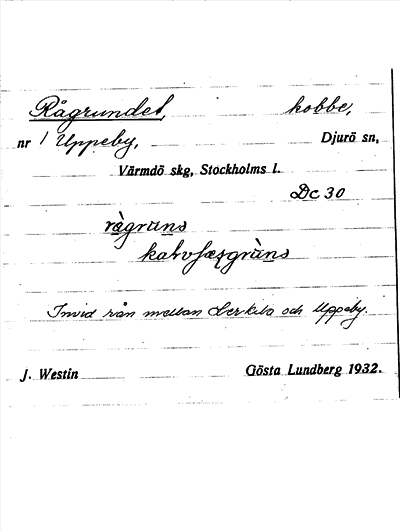 Rågrundet, kobbe,
nr 1 Uppeby, Djurö sn,
Värmdö skg, Stockholms l.
Dc 30
ràgrùns
kalvfjæṣgrùns
Invid rån mellan Lerkila och Uppeby.
J. Westin Gösta Lundberg 1932.